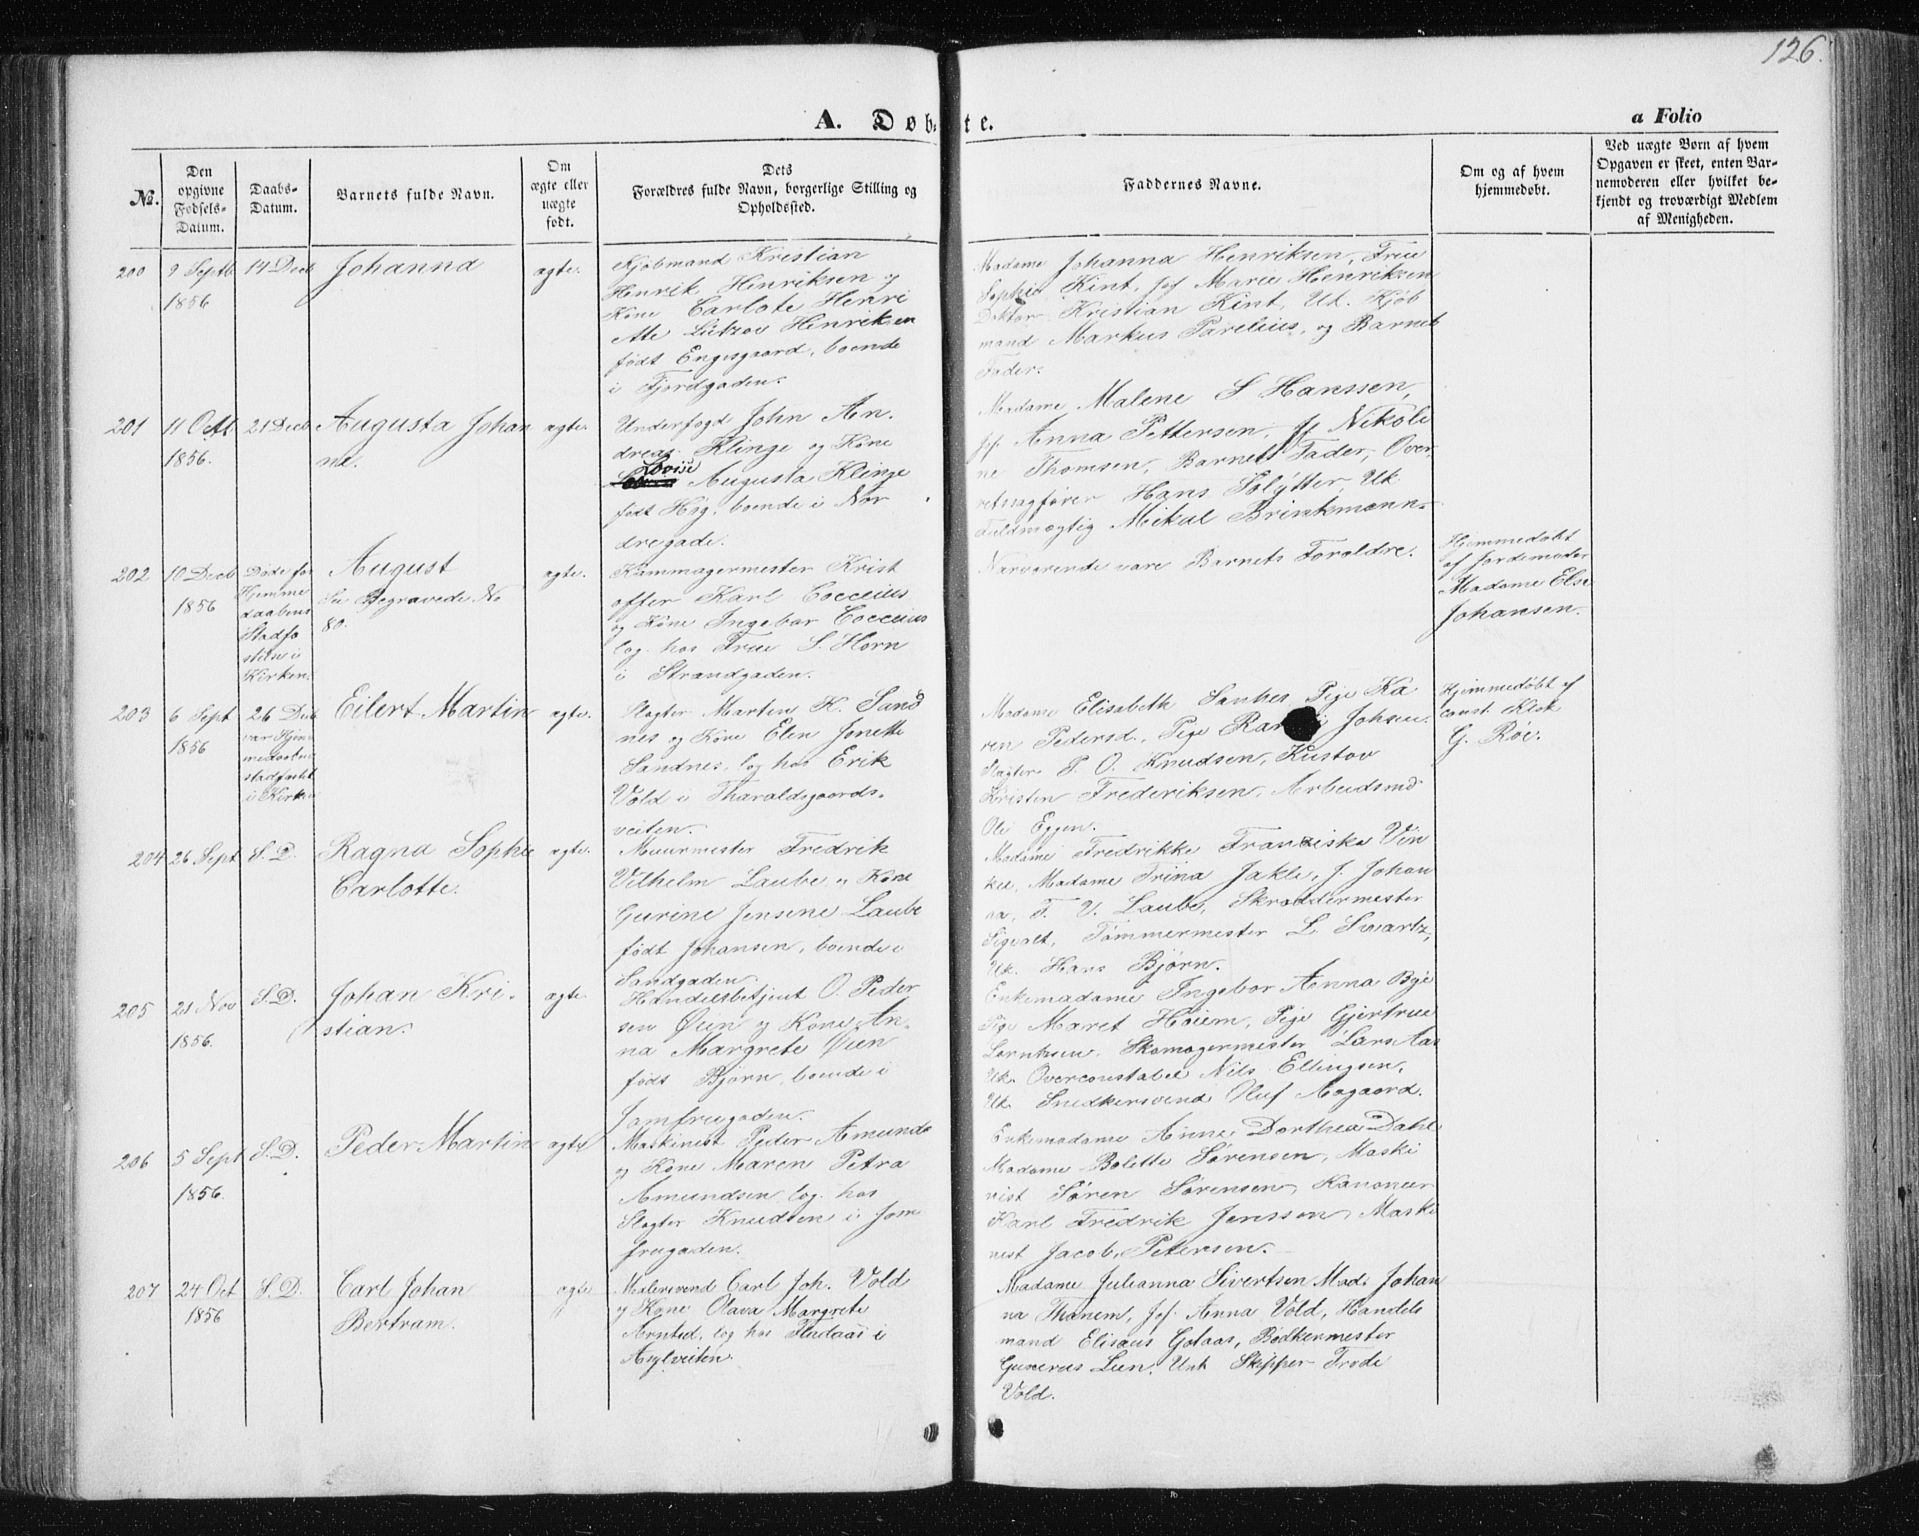 126.
A. Døbte.
a Folio
No.
Den
opgivne
Fødsels-
Datum.
Daabs-
Datum.
Barnets fulde Navn.
Om
ægte eller
uægte
født.
Dets
Forældres fulde Navn, borgerlige Stilling og
Opholdssted.
Faddernes Navne.
Om og af hvem
hjemmedøbt.
Ved uægte Børn af hvem
Opgaven er skeet, enten Bar-
nemoderen eller hvilket be-
kjendt og troværdigt Medlem
af Menigheden.
200
9 Septb
1856
14 Decb
Johanna
ægte.
Kjøbmand Kristian
Henrik Henriksen og
Kone Carlote Henri
ette Lützov Hinriksen
født Engesgaard, boende
i Fjordgaden.
Madame Johanna Henriksen, Frue
Sophie Kint, Jef Marie Henriksen
Doktor Kristian Kint, Uk. Kjøb
mand Markus Parelius, og Barnets
Fader.
201
11 Octb
1856.
21 Decb
Augusta Johan
ne.
ægte.
Underfogd John An-
dreas Klinge og Kone
Lovise Augusta Klinge
født Høg, boende i Nor
dregade.
Madame Malene S Hanssen,
jf. Anna Pettersen, jf Nikoli
ne Thomsen, Barnets Fader, Over
retssagfører Hans Solytter, Uk
Fuldmægtig Mikal Brinkmann.
202
10 Decb
1856
Døde før
Hjemme
daabens
Stadfæ
stelse i
Kirken.
August
Se Begravede No
80.
ægte.
Kammagermester Krist
offer Karl Cocceius
og Kone Ingebor Cocceius
log. hos Frue S. Horn
i Strandgaden.
Nærværende vare Barnets Forældre.
Hjemmedøbt
af Jordemoder
Madame Else
Johansen.
203
6 Sept
1856
26 Decb
var Hjem
medøbt
stadfæstet
i Kirken
Eilert Martin
ægte.
Slagter Marten K. Sand
nes og Kone Elen Jonette
Sandnes, log hos Erik
Vold i Tharaldsgaards-
veiten.
Madame Elisabeth Sandnes, Pige Ka
ren Pedersd., Pige Johsen.
Slagter P. O. Knudsen, Kustov
Kristen Frederiksen, Arbeidsmd
Ole Eggen.
Hjemmedøbt af
const. Klok
G. Röe.
204
26 Sept
S. D.
Ragna Sophie
Carlotte.
ægte.
Muurmester Fredrik
Vilhelm Laube og Kone
Gurine Jensene Laube
født Johansen, boende i
Sandgaden.
Madame Fredrikke Franziska Vin
kel, Madame Trina Jakle, J. Johan
na, F. V. Laube, Skræddermester
Sigvalt, Tømmermester L. Swartz,
Uk. Hans Bjørn.
205
21 Nov
1856.
S. D.
Johan Kri-
stian.
ægte.
Handelsbetjent O. Peder
sen Øien og Kone An-
na Margrete Øien
født Bjørn, boende i
Jomfrugaden.
Enkemadame Ingebor Anna Bye
Pige Maret Høiem, Pige Gjertrue
Lorntsen. Skomagermester Lars Aas
Uk. Overconstabel Nils Ellingsen,
Uk. Snedkersvend Oluf Aagaard.
206
5 Sept
1856.
S. D.
Peder Martin
ægte
Maskinest Peder Amunds
og Kone Maren Petra
Amundsen, log. hos
Slagter Knudsen i Jom
frugaden.
Enkemadame Anne Dorthea Dahl
Madame Bolette Sørensen, Maski
nist Søren Sørensen, Kanoneer
Karl Fredrik Jenssen, Maski
nest Jacob Petersen.
207
24 Oct
1856
S. D.
Carl Johan
Bertram.
ægte
Malersvend Carl Joh. Vold
og Kone Olava Margrete
Arnsted, log hos Flidaas i
Asylveiten.
Madame Julianna Sivertsen Mad. Johan
na Thanem, Jef. Anna Vold, Handels
mand Elisæus Golaas, Bødkermester
Gunerus Lien, Unk Skipper Frode
Vold.